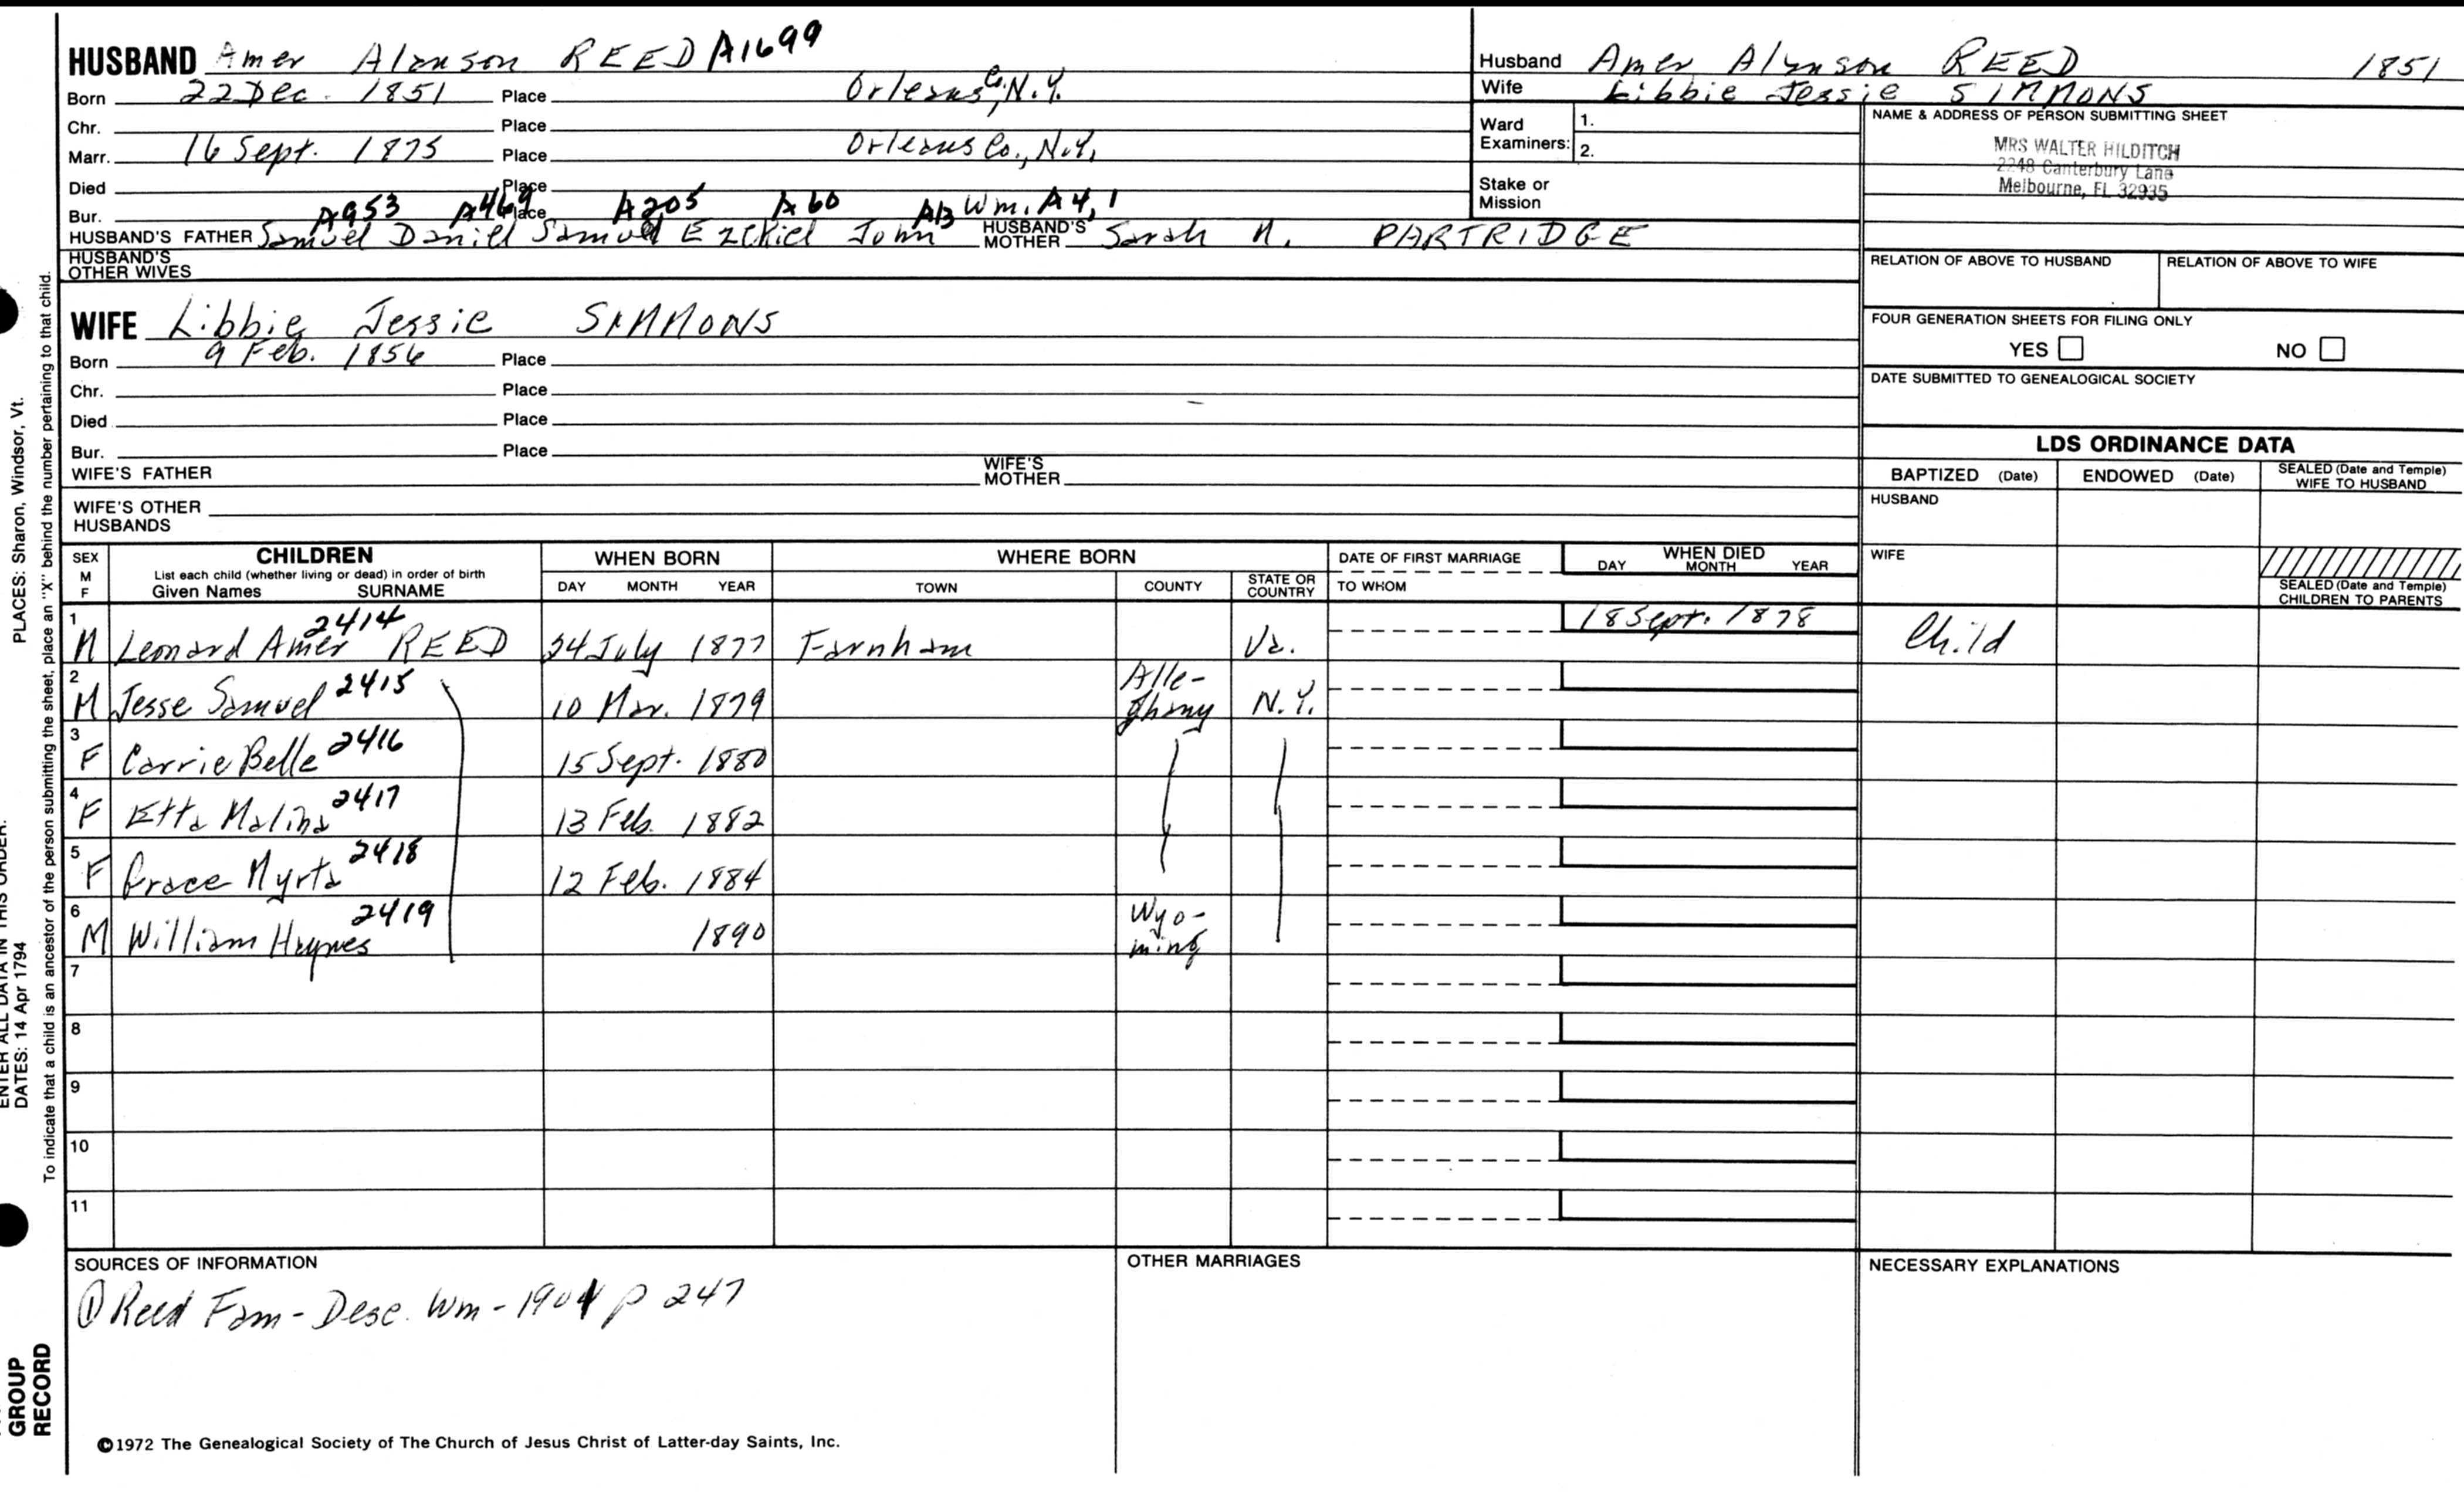 HUSBAND Amer Alanson REED A1699
Born 22 Dec. 1851 Place Orleans Co., N.Y.
Chr. Place
Marr. 16 Sept. 1875 Place Orleans Co., N.Y.
Died Place
Bur. Place
A953 A469 A205 A60 A13 Wm. A4,1
HUSBAND'S FATHER Samuel Daniel Samuel Ezekiel John HUSBAND'S MOTHER Sarah M. PARTRIDGE
HUSBAND'S OTHER WIVES
Husband Amer Alanson REED 1851
Wife Libbie Jessie SIMMONS
Ward Examiners: 1.
2.
Stake or Mission
NAME & ADDRESS OF PERSON SUBMITTING SHEET
MRS WALTER HILDITCH
2248 Canterbury Lane
Melbourne, FL 32935
RELATION OF ABOVE TO HUSBAND RELATION OF ABOVE TO WIFE
FOUR GENERATION SHEETS FOR FILING ONLY
YES NO
DATE SUBMITTED TO GENEALOGICAL SOCIETY
WIFE Libbie Jessie SIMMONS
Born 9 Feb. 1856 Place
Chr. Place
Died Place
Bur. Place
WIFE'S FATHER WIFE'S MOTHER
WIFE'S OTHER HUSBANDS
LDS ORDINANCE DATA
BAPTIZED (Date) ENDOWED (Date) SEALED (Date and Temple) WIFE TO HUSBAND
HUSBAND
WIFE
SEALED (Date and Temple) CHILDREN TO PARENTS
SEX M F
CHILDREN
List each child (whether living or dead) in order of birth
Given Names SURNAME
WHEN BORN
DAY MONTH YEAR
WHERE BORN
TOWN COUNTY STATE OR COUNTRY
DATE OF FIRST MARRIAGE
TO WHOM
WHEN DIED
DAY MONTH YEAR
1 M Leonard Amer REED 2414 24 July 1877 Farnham Va. 18 Sept. 1878 Child
2 M Jesse Samuel 2415 10 Mar. 1879 Alle-ghany N.Y.
3 F Carrie Belle 2416 15 Sept. 1880
4 F Etta Malina 2417 13 Feb. 1882
5 F Grace Myrta 2418 12 Feb. 1884
6 M William Haynes 2419 1890 Wyo-ming
7
8
9
10
11
SOURCES OF INFORMATION
① Reed Fam - Desc. Wm - 1901 p 247
OTHER MARRIAGES
NECESSARY EXPLANATIONS
©1972 The Genealogical Society of The Church of Jesus Christ of Latter-day Saints, Inc.
GROUP
RECORD
DATA IN THIS ORDER:
PLACES: Sharon, Windsor, Vt.
DATES: 14 Apr 1794
To indicate that a child is an ancestor of the person submitting the sheet, place an "X" behind the number pertaining to that child.